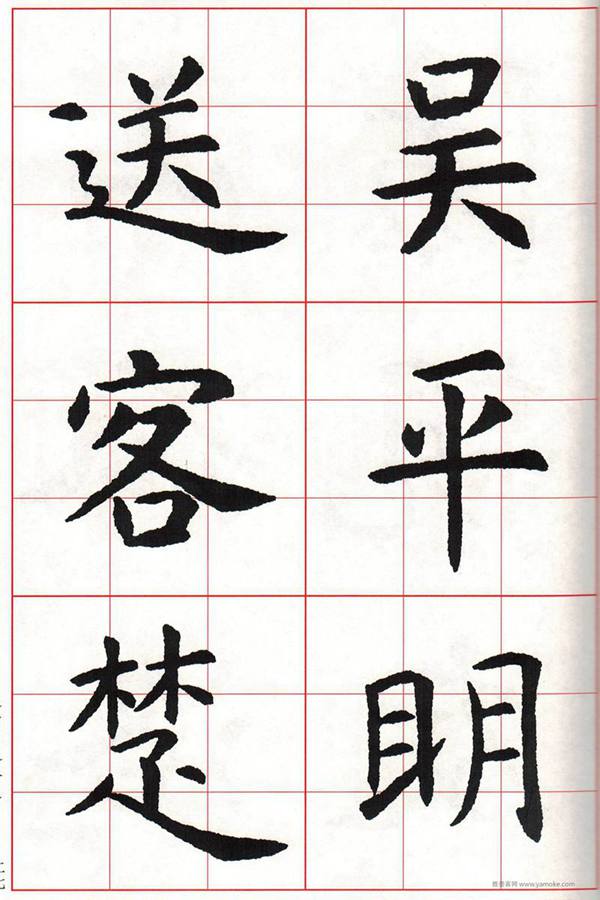 吴平明
送客楚
雅墨客网 www.yamoke.com